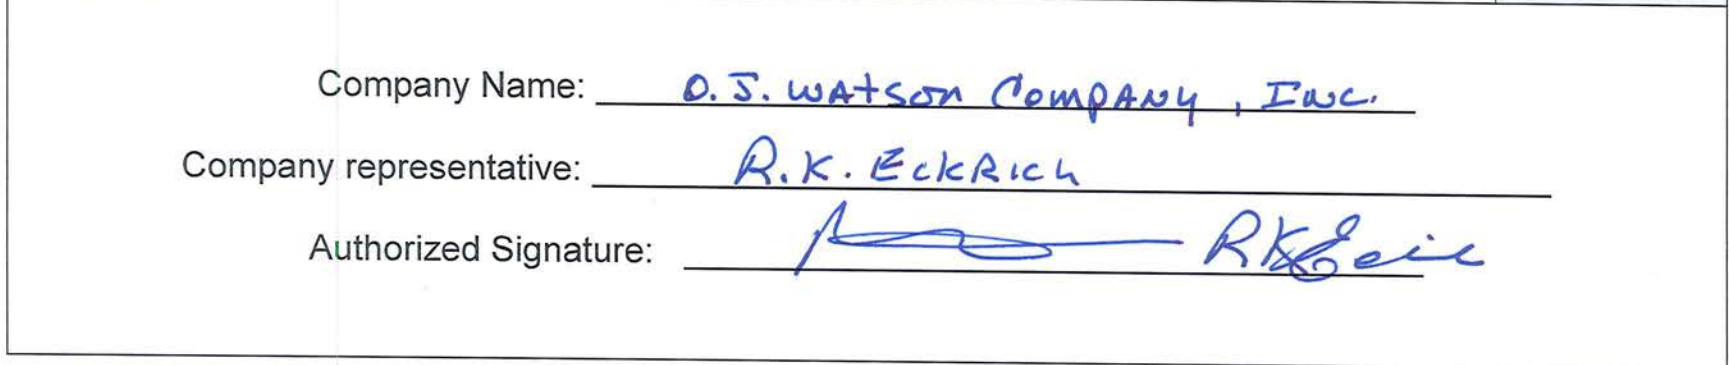 Company Name: O. J. Watson Company, Inc.
Company representative: R. K. Eckrich
Authorized Signature: